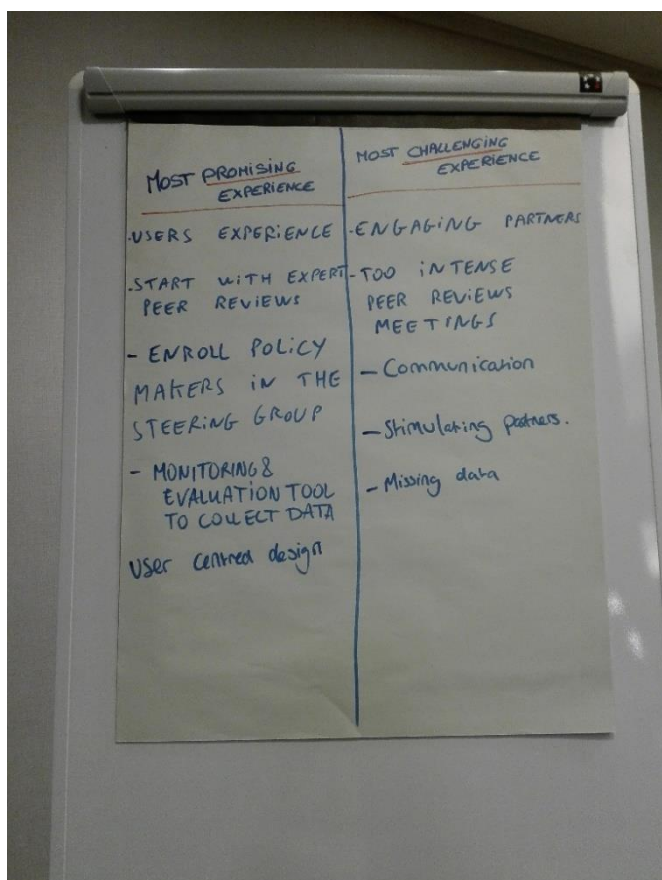 MOST PROMISING
EXPERIENCE
.USERS EXPERIENCE
.START WITH EXPERT
PEER REVIEWS
- ENROLL POLICY
MAKERS IN THE
STEERING GROUP
- MONITORING &
EVALUATION TOOL
TO COLLECT DATA
User centred design
MOST CHALLENGING
EXPERIENCE
.ENGAGING PARTNERS
- TOO INTENSE
PEER REVIEWS
MEETINGS
- Communication
- Stimulating partners.
- Missing data